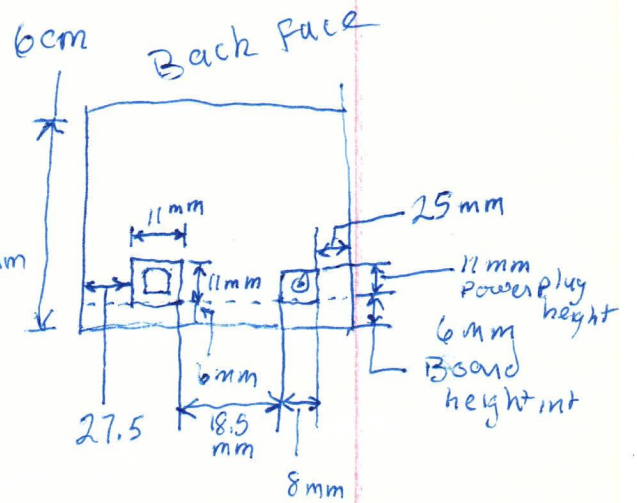 6cm
Back Face
11 mm
25 mm
mm
11 mm
11 mm
Power plug
height
6 mm
6 mm
Board
height int
27.5
18.5
mm
8 mm